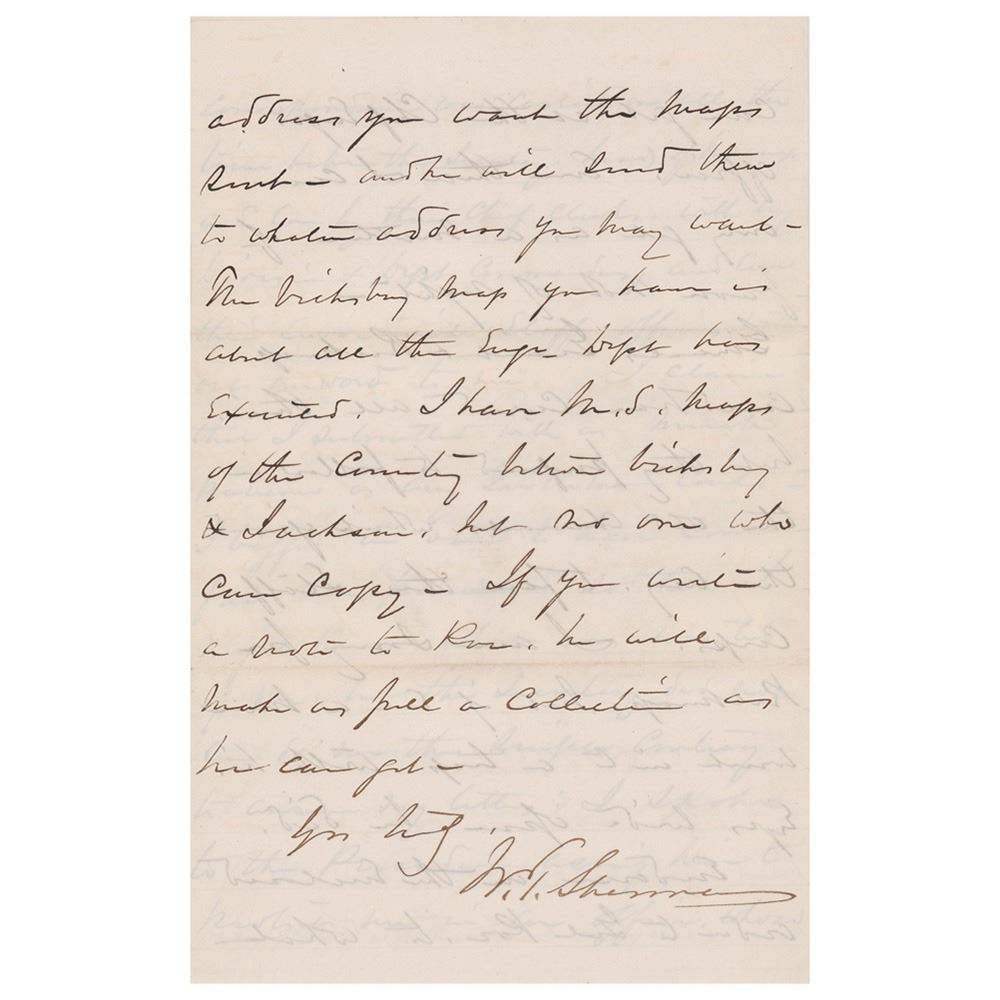 address you want the maps
sent - and he will send them
to whatever address you may want -
The Vicksburg map you have is
about all the Engr. Dept has
Executed. I have M.S. maps
of the Country between Vicksburg
& Jackson, but no one who
can Copy - If you write
a note to Poe, he will
make as full a Collection as
he can get -
Yrs truly,
W.T. Sherman